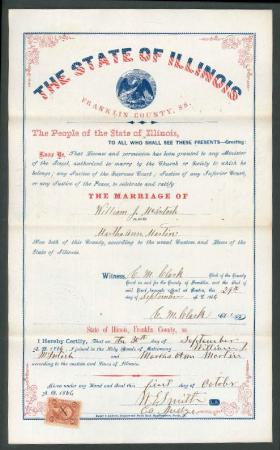 THE STATE OF ILLINOIS
FRANKLIN COUNTY, SS.
The People of the State of Illinois,
TO ALL WHO SHALL SEE THESE PRESENTS—Greeting:
Know Ye, That License and permission has been granted to any Minister
of the Gospel, authorized to marry by the Church or Society to which he
belongs; any Justice of the Supreme Court; Justice of any Inferior Court,
or any Justice of the Peace, to celebrate and ratify
THE MARRIAGE OF
William J. McIntosh
AND
Martha Ann Martin
Now both of this County, according to the usual Custom and Laws of the
State of Illinois.
Witness, C. M. Clark Clerk of the County
Court in and for the County of Franklin, and the Seal of
said Court hereunto affixed at Benton, this 29th
day of September A.D. 1866
C. M. Clark Clerk
State of Illinois, Franklin County, ss
I Hereby Certify, That on the 30th day of September
A.D. 1866 I joined in the Holy State of Matrimony William J.
McIntosh and Martha Ann Martin
according to the custom and Laws of Illinois.
Given under my hand and Seal this first day of October
A.D. 1866
W. E. Smith
Co. Judge